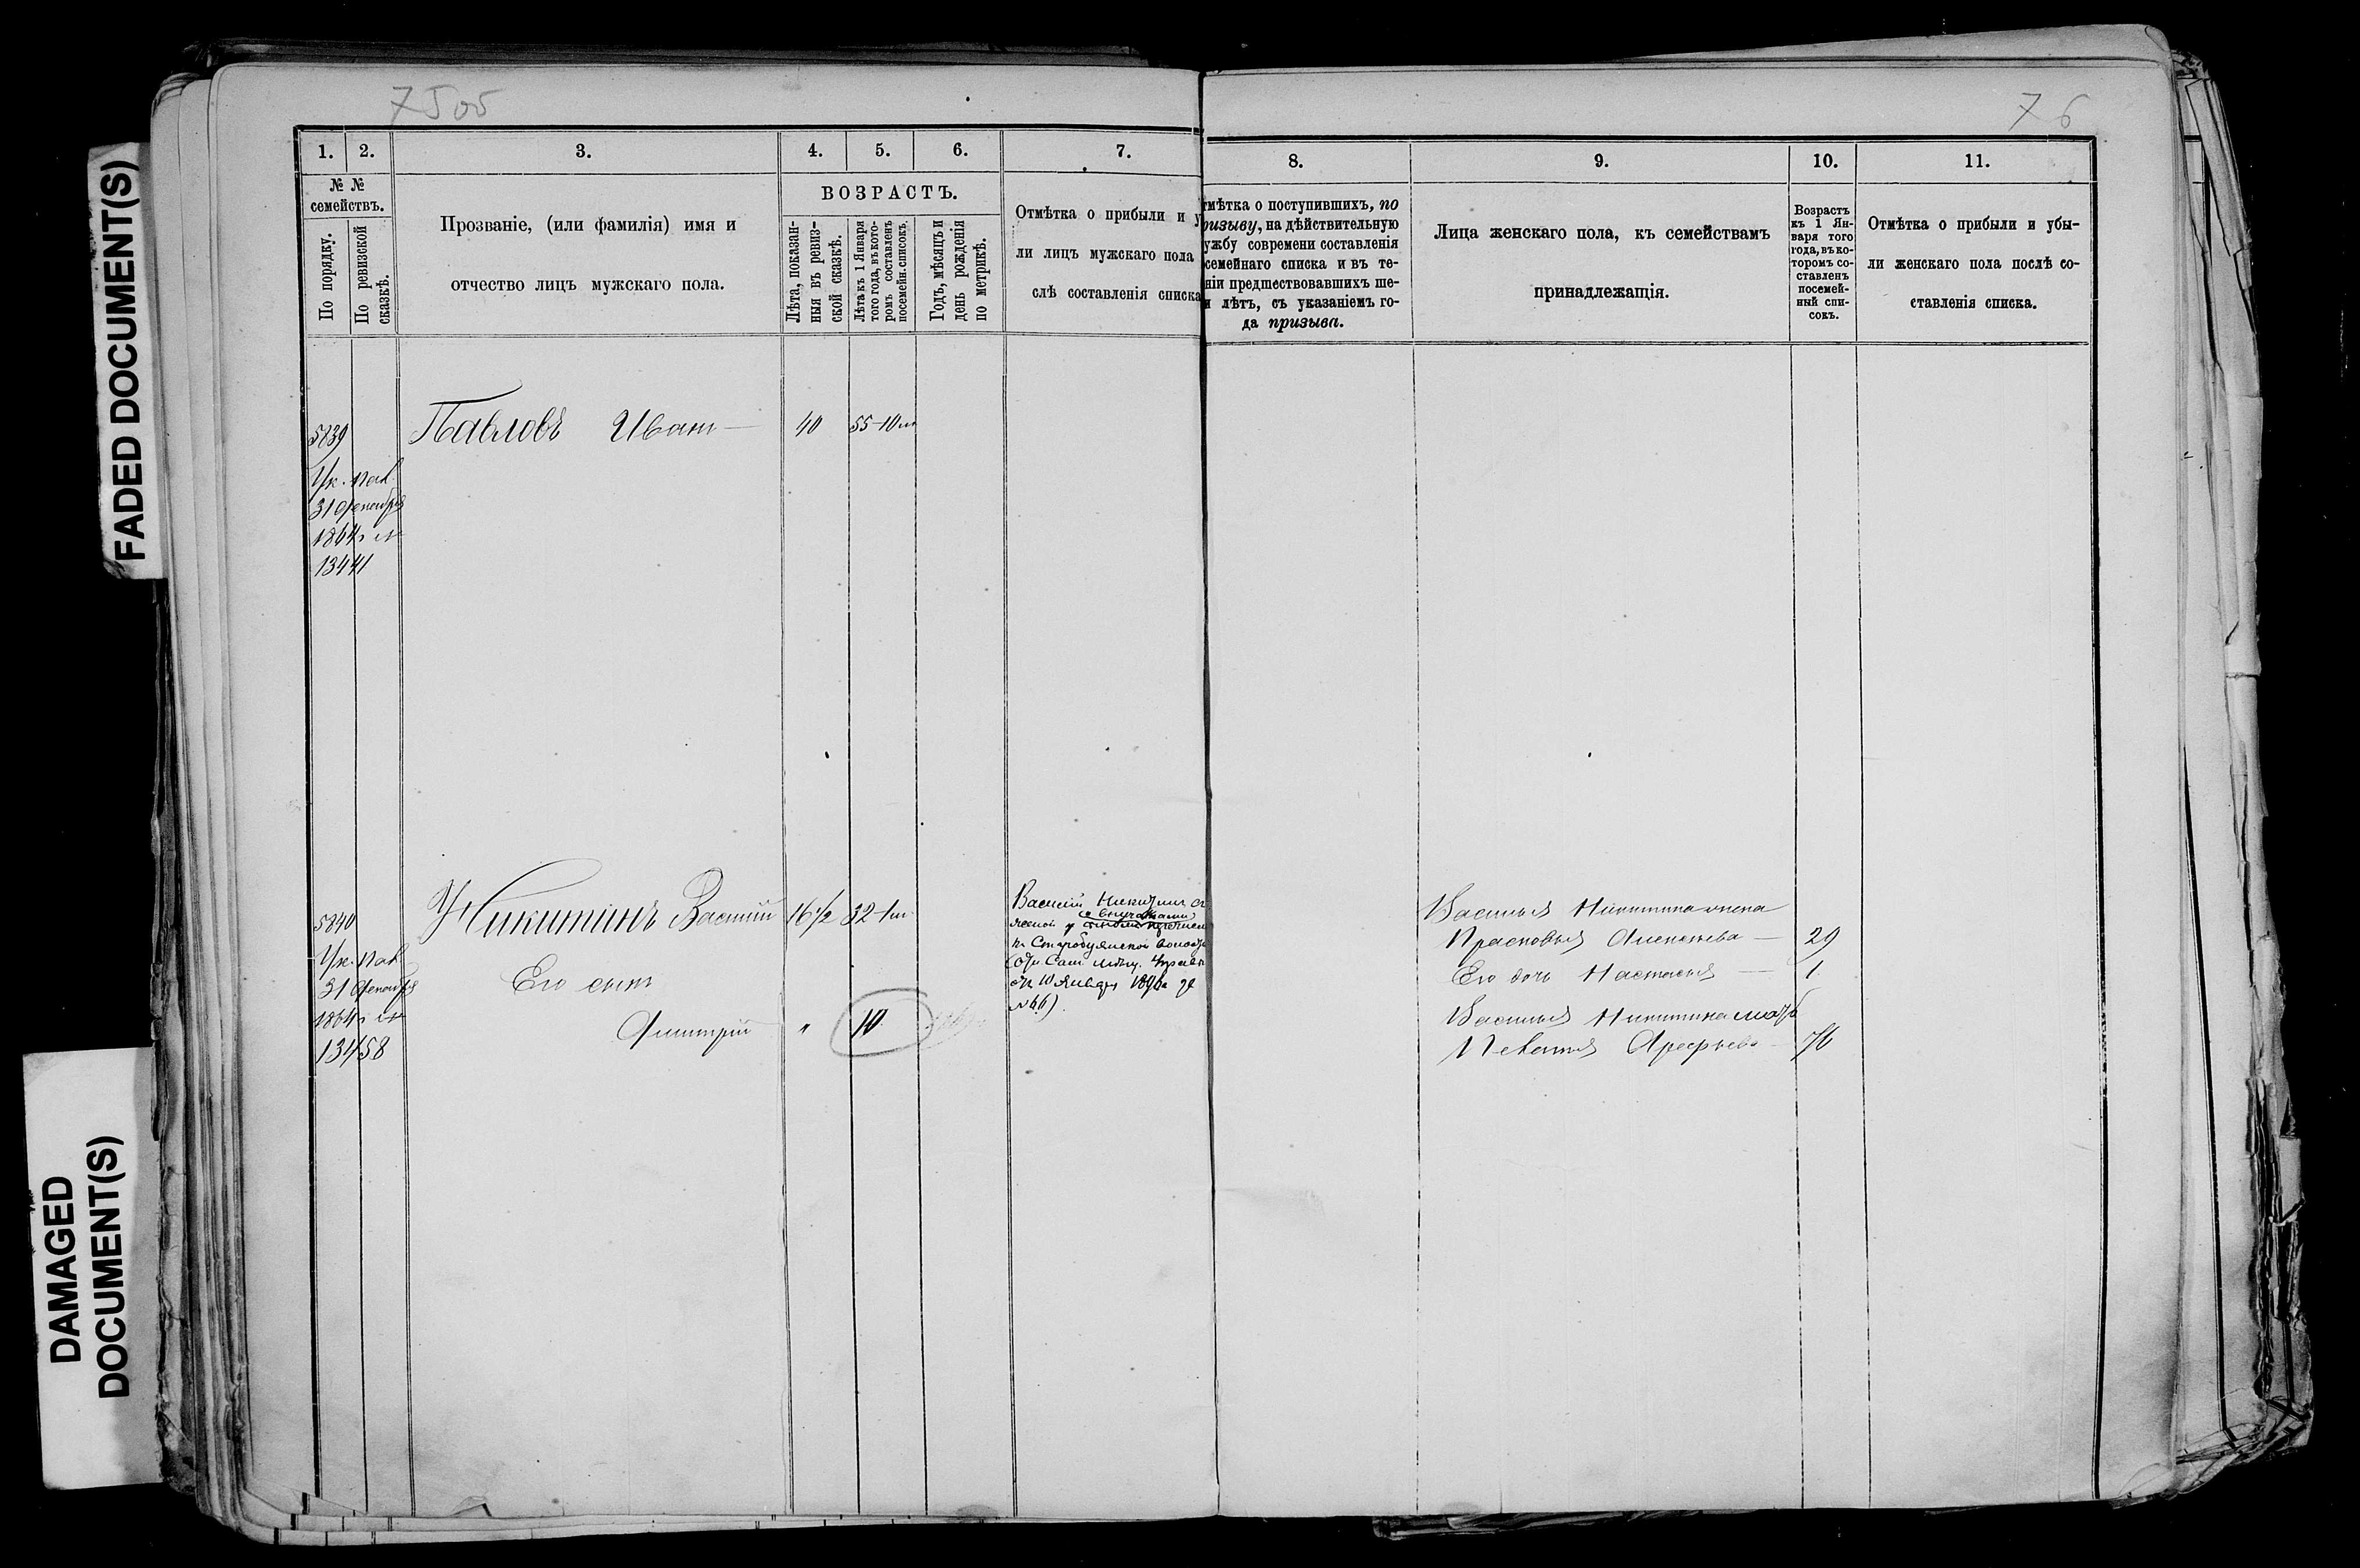 FADED DOCUMENT(S)
DAMAGED
DOCUMENT(S)
75об
76
1. 2. 3. 4. 5. 6. 7.
№ №
семействъ.
По порядку.
По ревизской
сказкѣ.
Прозваніе, (или фамилія) имя и
отчество лицъ мужскаго пола.
ВОЗРАСТЪ.
Лѣта, показан-
ныя въ ревиз-
ской сказкѣ.
Лѣта къ 1 Января
того года, въ кото-
ромъ составленъ
посемейн. списокъ.
Годъ, мѣсяцъ и
день рожденія
по метрикѣ.
Отмѣтка о прибыли и у
ли лицъ мужскаго пола
слѣ составленія списка
8. 9. 10. 11.
тмѣтка о поступившихъ, по
ризыву, на дѣйствительную
ужбу современи составленія
семейнаго списка и въ те-
ніи предшествовавшихъ ше-
и лѣтъ, съ указаніемъ го-
да призыва.
Лица женскаго пола, къ семействамъ
принадлежащія.
Возрастъ
къ 1 Ян-
варя того
года, въ ко-
торомъ со-
ставленъ
посемей-
ный спи-
сокъ.
Отмѣтка о прибыли и убы-
ли женскаго пола послѣ со-
ставленія списка.
5839 Павловъ Иванъ 40 55-10м
Ук. Пал.
31 Декабря
1864г №
13441
5840 Никитинъ Василій 16½ 32-1м
Ук. Пал.
31 Декабря
1864г №
13458
Его сынъ
Дмитрій " 10
Василій Никитинъ съ
женой и
къ волости
10 Января
№ 66)
Василья Никитина жена
Прасковья Алексѣева 29
Его дочь Настасья 1
Василья Никитина мать
Пелагія Арефьева 76